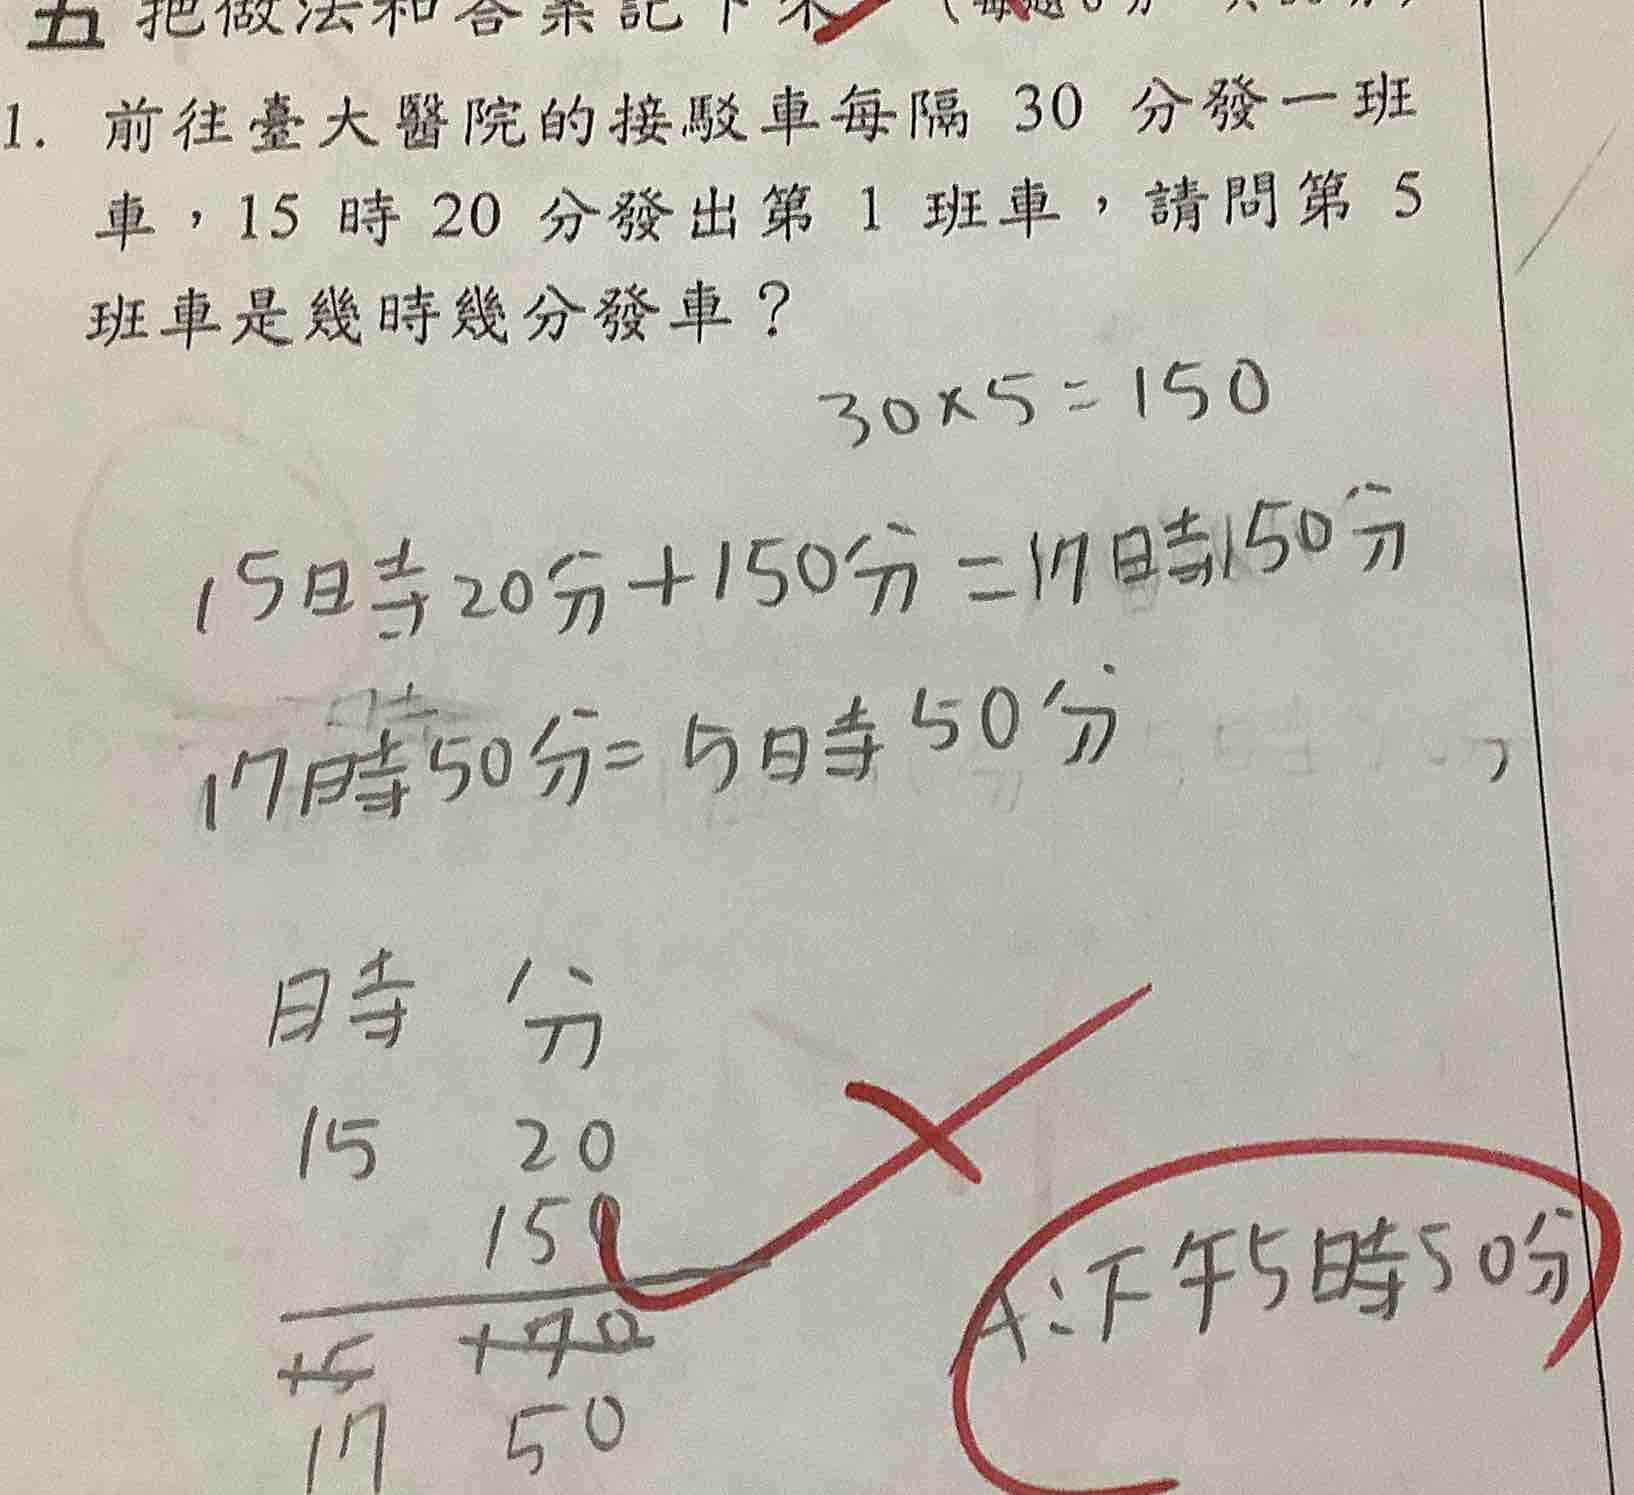 五 把做法和答案記下來
1. 前往臺大醫院的接駁車每隔 30 分發一班
車，15 時 20 分發出第 1 班車，請問第 5
班車是幾時幾分發車？
30×5=150
15時20分+150分=17時150分
17時50分=5時50分
時 分
15 20
150
15 170
17 50
A:下午5時50分